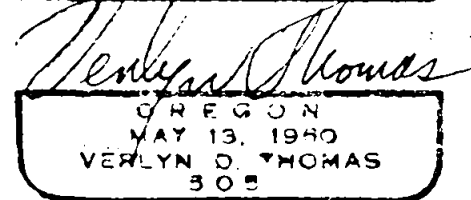 Verlyn D. Thomas
OREGON
MAY 13, 1960
VERLYN D. THOMAS
505